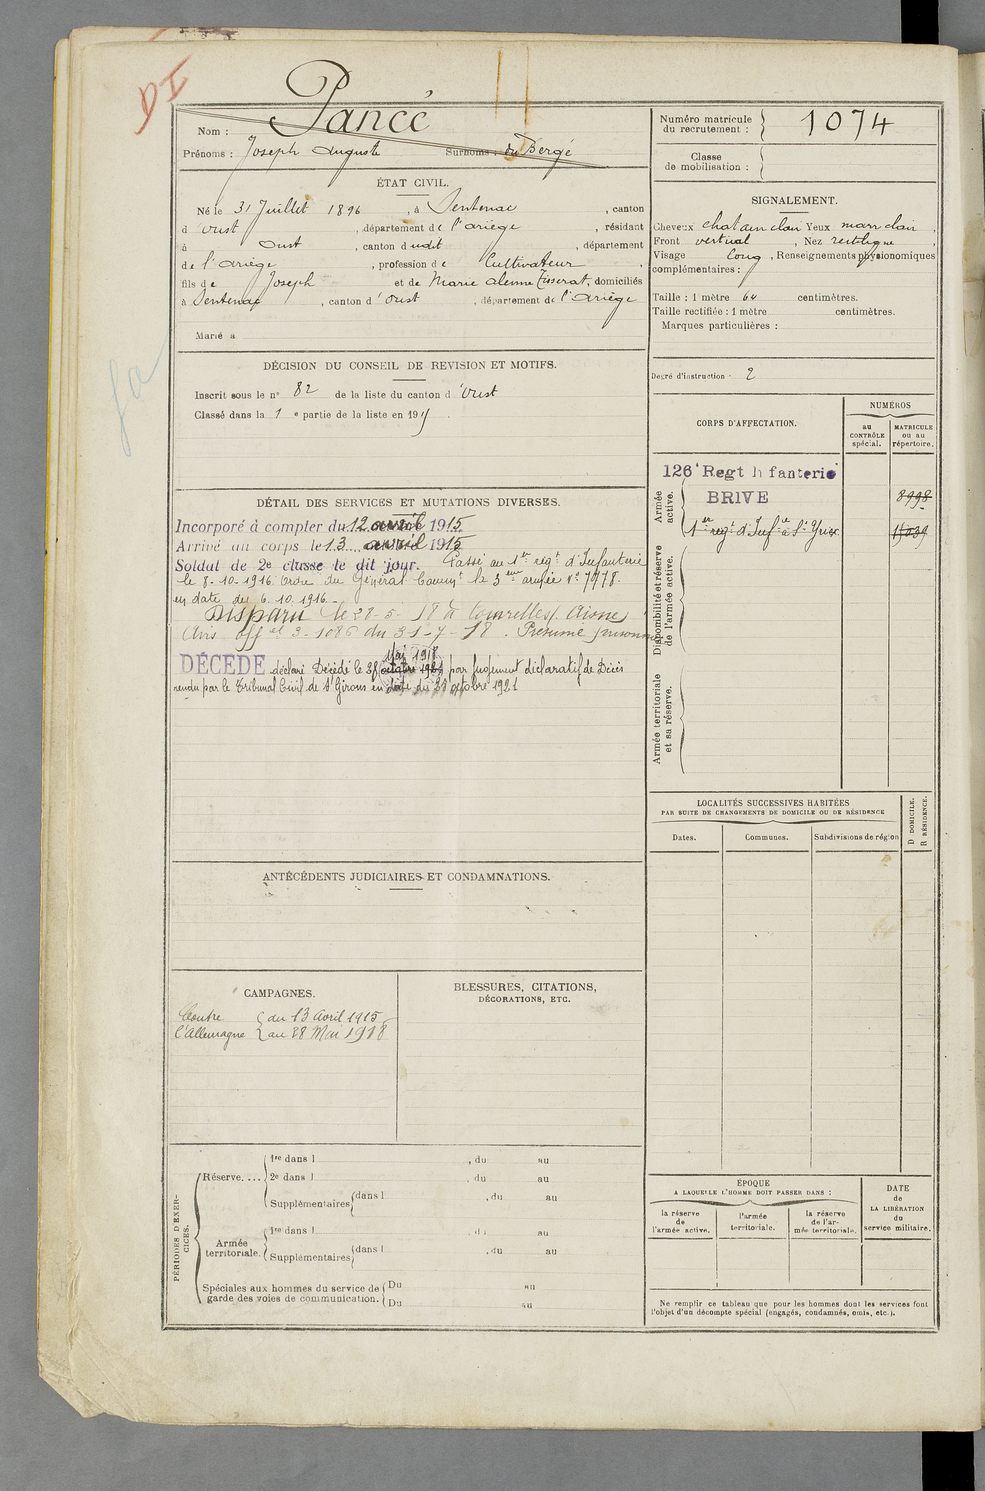 DI
Pancé
Nom :
Prénoms : Joseph Auguste Surnoms : du Bergé
ÉTAT CIVIL.
Né le 31 Juillet 1896, à Sentenac, canton
d'Oust, département de l'Ariège, résidant
à Oust, canton dudit, département
de l'Ariège, profession de Cultivateur,
fils de Joseph et de Marie domiciliés
à Sentenac, canton d'Oust, département de l'Ariège
Marié à
DÉCISION DU CONSEIL DE REVISION ET MOTIFS.
Inscrit sous le n° 82 de la liste du canton d'Oust
Classé dans la 1e partie de la liste en 191
DÉTAIL DES SERVICES ET MUTATIONS DIVERSES.
Incorporé à compter du 12 avril 1915
Arrivé au corps le 13 avril 1915
Soldat de 2e classe le dit jour. Passé au 1er régt d'Infanterie
le 8-10-1916 Ordre du Général Commt la 3eme armée
en date du 6.10.1916.
Disparu le 28-5-18 à Courcelles Aisne
Avis offel 3-1086 du 31-7-18. Présumé prisonnier
Mai 1918
DÉCÉDÉ déclaré Décédé le 28 octobre 1921 par jugement déclaratif de Décès
rendu par le Tribunal Civil de St Girons en date du 28 octobre 1921
ANTÉCÉDENTS JUDICIAIRES ET CONDAMNATIONS.
CAMPAGNES.
Contre { du 13 Avril 1915
l'Allemagne { au 28 Mai 1918
BLESSURES, CITATIONS,
DÉCORATIONS, ETC.
PÉRIODES D'EXERCICES.
Réserve....
1re dans l , du au
2e dans l , du au
Supplémentaires { dans l , du au
Armée territoriale.
1re dans l , du au
Supplémentaires { dans l , du au
Spéciales aux hommes du service de garde des voies de communication.
Du au
Du au
Numéro matricule du recrutement : 1074
Classe de mobilisation :
SIGNALEMENT.
Cheveux chatain clair Yeux marr clair,
Front vertical, Nez rectiligne,
Visage long, Renseignements physionomiques
complémentaires :
Taille : 1 mètre 64 centimètres.
Taille rectifiée : 1 mètre centimètres.
Marques particulières :
Degré d'instruction : 2
CORPS D'AFFECTATION.
NUMÉROS
au CONTRÔLE spécial.
MATRICULE ou au répertoire.
Armée active.
126e Regt Infanterie
BRIVE 8998
1er régt d'Infie
Disponibilité et réserve de l'armée active.
Armée territoriale et sa réserve.
LOCALITÉS SUCCESSIVES HABITÉES
PAR SUITE DE CHANGEMENTS DE DOMICILE OU DE RÉSIDENCE
Dates. Communes. Subdivisions de région
D DOMICILE.
R RÉSIDENCE.
ÉPOQUE
A LAQUELLE L'HOMME DOIT PASSER DANS :
la réserve de l'armée active.
l'armée territoriale.
la réserve de l'armée territoriale.
DATE de LA LIBÉRATION du service militaire.
Ne remplir ce tableau que pour les hommes dont les services font
l'objet d'un décompte spécial (engagés, condamnés, omis, etc.).